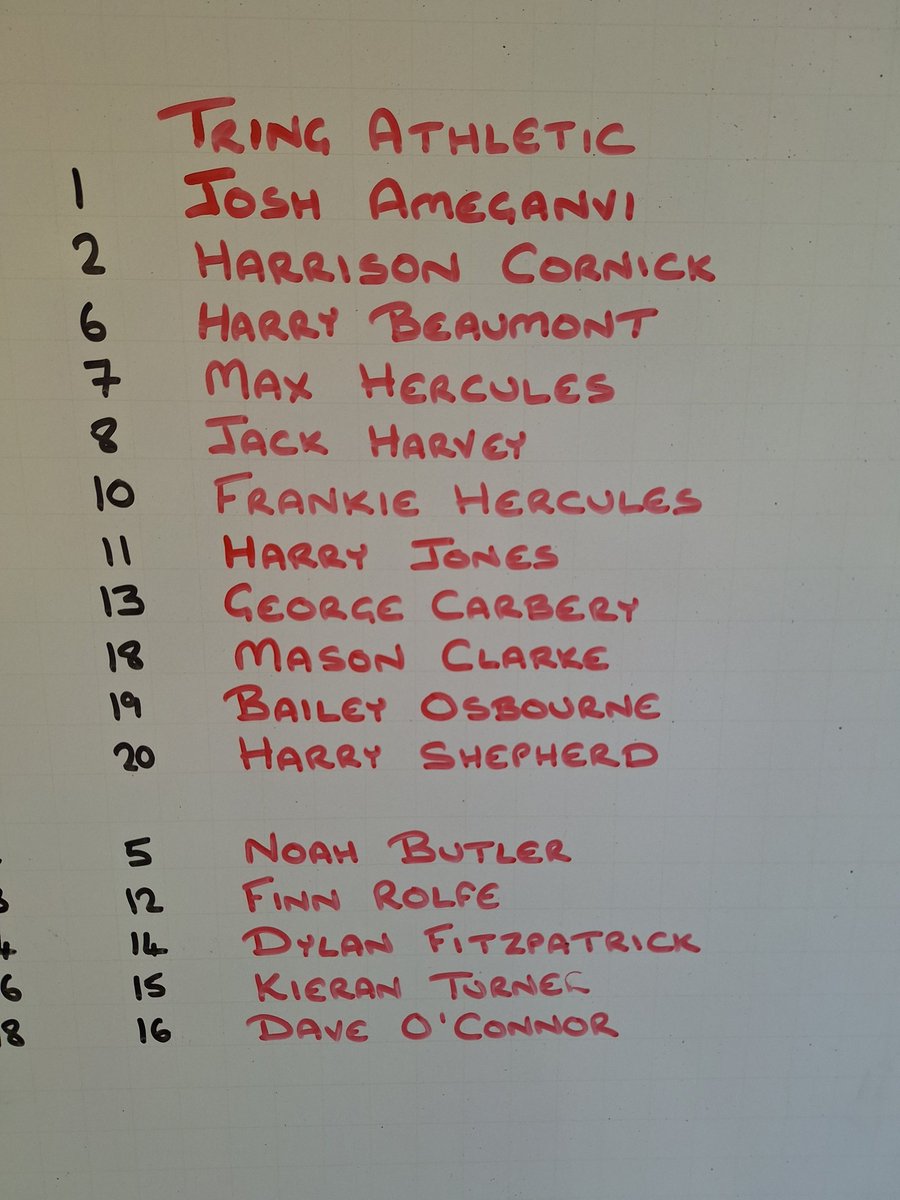 TRING ATHLETIC
1 JOSH AMEGANVI
2 HARRISON CORNICK
6 HARRY BEAUMONT
7 MAX HERCULES
8 JACK HARVEY
10 FRANKIE HERCULES
11 HARRY JONES
13 GEORGE CARBERY
18 MASON CLARKE
19 BAILEY OSBOURNE
20 HARRY SHEPHERD
5 NOAH BUTLER
12 FINN ROLFE
14 DYLAN FITZPATRICK
6 15 KIERAN TURNER
8 16 DAVE O'CONNOR